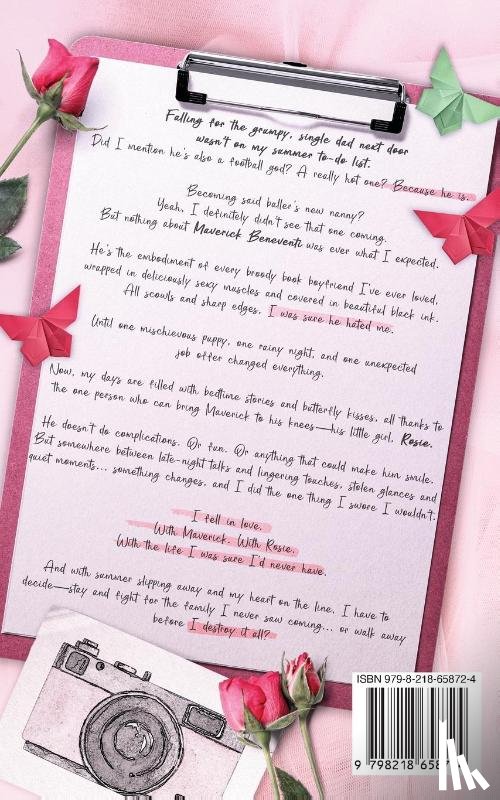 Falling for the grumpy, single dad next door
wasn't on my summer to-do list.
Did I mention he's also a football god? A really hot one? Because he is.
Becoming said baller's new nanny?
Yeah, I definitely didn't see that one coming.
But nothing about Maverick Beneventi was ever what I expected.
He's the embodiment of every broody book boyfriend I've ever loved,
wrapped in deliciously sexy muscles and covered in beautiful black ink.
All scowls and sharp edges, I was sure he hated me.
Until one mischievous puppy, one rainy night, and one unexpected
job offer changed everything.
Now, my days are filled with bedtime stories and butterfly kisses, all thanks to
the one person who can bring Maverick to his knees—his little girl, Rosie.
He doesn't do complications. Or fun. Or anything that could make him smile.
But somewhere between late-night talks and lingering touches, stolen glances and
quiet moments... something changes, and I did the one thing I swore I wouldn't.
I fell in love.
With Maverick. With Rosie.
With the life I was sure I'd never have.
And with summer slipping away and my heart on the line, I have to
decide—stay and fight for the family I never saw coming... or walk away
before I destroy it all?
ISBN 979-8-218-65872-4
9 798218 658